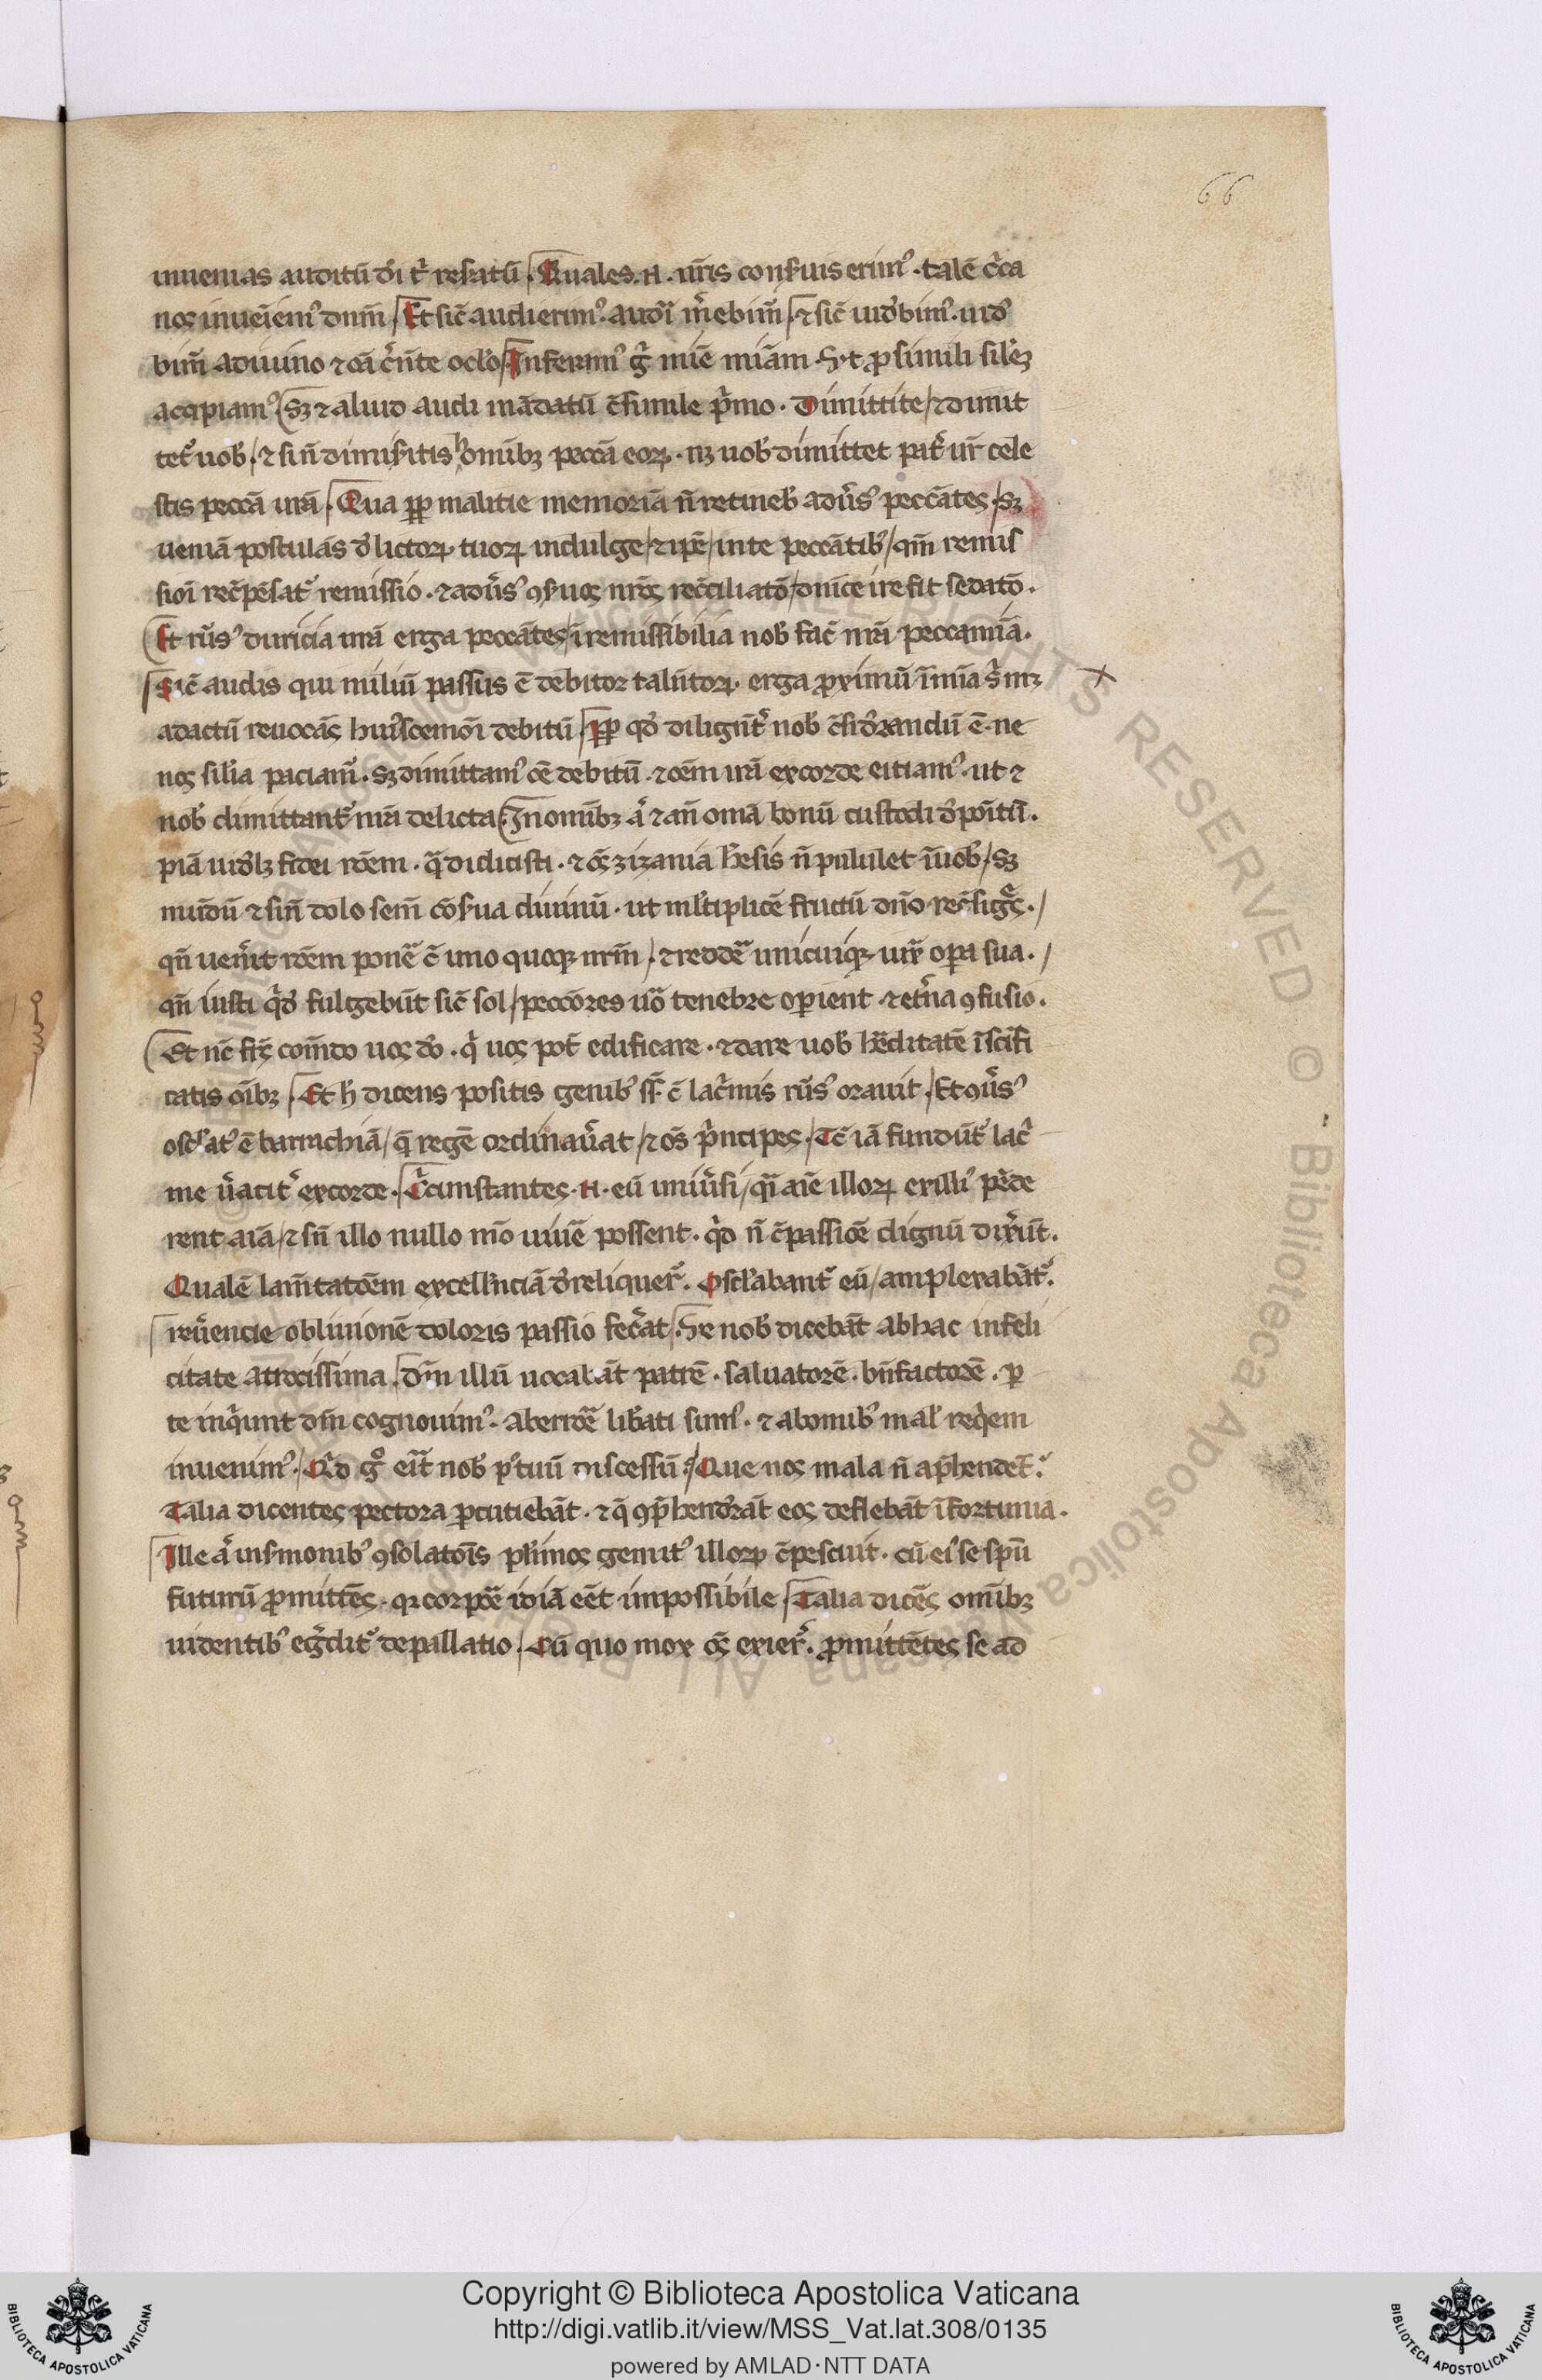 66
inuenias auditū dī t̄ resatū. Quales .n. nr̄is conseruis erim᷒. talē c̄ca
nos inueīem᷒ dn̄m Et sic̄ audierim᷒. audī m̄ebim᷒ ⁊ sic̄ uidebim᷒. uide
bim᷒ a diuino ⁊ oīa c̄n̄te oclo Inferam᷒ g̊ mīe mīam. Ut ꝓ simili silez
accipiam᷒ Sꝫ ⁊ aliud audi mādatū c̄simile pͥmo. Dimittite / ⁊ dimit
tet᷒ uob̄. / ⁊ si n̄ dimisitis hoīnibꝫ peccā eoꝝ. nꝫ uob̄ dimittet pat̄ ur̄ cele
stis peccā urā. Qua ꝓp malitie memoriā n̄ retineb̄ adu̓s᷒ peccātes. sꝫ
ueniā postulās delictoꝝ tuoꝝ indulge / ⁊ ip̄e / in te peccātib᷒ / qm̄ remis
sioī rec̄pēsat᷒ remissio. ⁊ adu̓s᷒ ꝯseruos nr̄os rec̄ciliatō / diuīe ire fit sedatō.
Et rūs᷒ duricia urā erga peccātes / īremissibilia nob̄ fac̄ nrā peccamīa.
Sic̄ audis qui miliū passus ē debitor talentoꝝ erga ꝓximū
ad actū reuocās hui᷒scemōi debitū ꝓp qd̓ diligent̓ nob̄ c̄sid̓andū ē. ne
nos silīa paciam᷒. sꝫ dimittam᷒ oē debitū. ⁊ oēm irā ex corde eiciam᷒. ut ⁊
nob̄ dimittant᷒ nrā delicta In omībꝫ a̓ ⁊ an̄ omā bonū custodi depoītū.
piā uidelꝫ fidei rōem. qͣ didicisti. ⁊ oīs zizania h̓esis n̄ pululet ī uob̄ / sꝫ
mūdū ⁊ sin̄ dolo sem̄ cōserua diuinū. ut ml̓tiplicē fructū dn̄o
qn̄ uen̓it rōem pon̓e c̄ uno quoqꝫ nrm̄ / ⁊ redd̓e unicuiqꝫ iux̄ oꝑa sua. /
qn̄ iusti qͥd̓ fulgebūt sic̄ sol / peccōres uō tenebre oꝑient ⁊ et̓na ꝯfusio.
Et nc̄ frs̄ com̄do uos dō. qͥ uos pot̄ edificare. ⁊ dare uob̄ h̓editatē ī scīfi
catis oībꝫ Et h̄ dicens positis genib᷒ c̄ lac̓mis rūs᷒ orauit / Et ꝯu̓s᷒
osc̄lat᷒ ē barachiā / q̄ regē ordinau̓at / ⁊ oēs pͥncipes. Tc̄ iā fundūt lac̓
me u̓acit̓ ex corde. C̓cumstantes .n. eū uniu̓si / qͣsi aīe illoꝝ ex illi᷒ pēde
rent aīā / ⁊ sn̄ illo nullo mō uiu̓e possent. qͥd n̄ c̄passiōe dignū dix̓ūt.
Qualē lam̄tatōem excellenciā dereliquer̄. Oscl̓abant᷒ eū / amplexabāt᷒.
reu̓encie obliuionē doloris passio fec̓at Ve nob̄ dicebāt ab hac infeli
citate atrocissima Dn̄m illū uocabāt patrē. saluatorē. bn̄factorē. ꝑ
te inqͥunt dm̄ cognouim᷒. ab errōe lib̓ati sum᷒. ⁊ ab omīb᷒ mal̓ reqͥem
inuenim᷒. Qͥd g̊ erit nob̄ p᷒ tuū discessū / Que nos mala n̄ ap̓hendet.
Talia dicentes pectora ꝑcutiebāt. ⁊ q̄ ꝯp̓hend̓ant eos deflebāt īfortunia.
Ille a̓ in s̓monib᷒ ꝯsolatōis pl̓imos gemit᷒ illoꝝ c̄pescuit. cū ei᷒ se spū
futurū ꝓmittēs. qꝫ corꝑe id iā eēt impossibile Talia dicēs omībꝫ
uidentib᷒ egͦdit᷒ de pallatio. Cū quo mox oēs exier̄. ꝓmittētes se ad
Copyright © Biblioteca Apostolica Vaticana
http://digi.vatlib.it/view/MSS_Vat.lat.308/0135
powered by AMLAD·NTT DATA